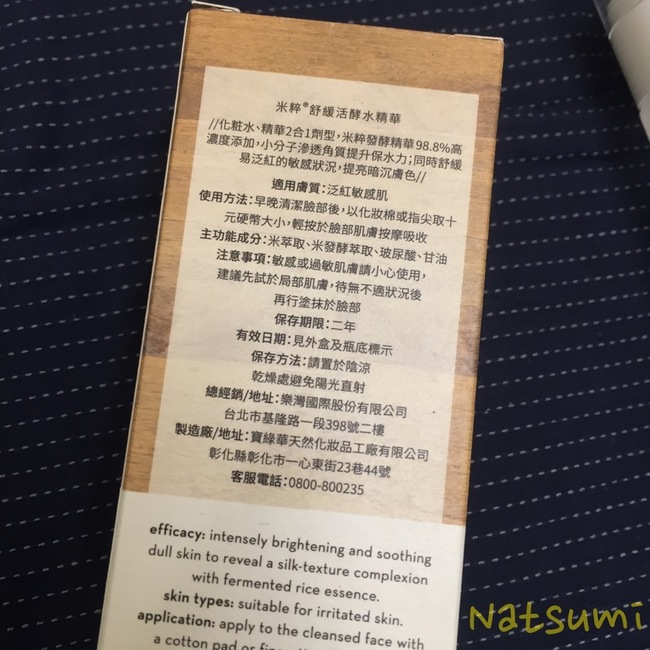 米粹®舒緩活酵水精華
//化粧水、精華2合1劑型，米粹發酵精華98.8%高
濃度添加，小分子滲透角質提升保水力；同時舒緩
易泛紅的敏感狀況，提亮暗沉膚色//
適用膚質：泛紅敏感肌
使用方法：早晚清潔臉部後，以化妝棉或指尖取十
元硬幣大小，輕按於臉部肌膚按摩吸收
主功能成分：米萃取、米發酵萃取、玻尿酸、甘油
注意事項：敏感或過敏肌膚請小心使用，
建議先試於局部肌膚，待無不適狀況後
再行塗抹於臉部
保存期限：二年
有效日期：見外盒及瓶底標示
保存方法：請置於陰涼
乾燥處避免陽光直射
總經銷/地址：樂灣國際股份有限公司
台北市基隆路一段398號二樓
製造廠/地址：寶綠華天然化妝品工廠有限公司
彰化縣彰化市一心東街23巷44號
客服電話：0800-800235
efficacy: intensely brightening and soothing
dull skin to reveal a silk-texture complexion
with fermented rice essence.
skin types: suitable for irritated skin.
application: apply to the cleansed face with
a cotton pad or
Natsumi